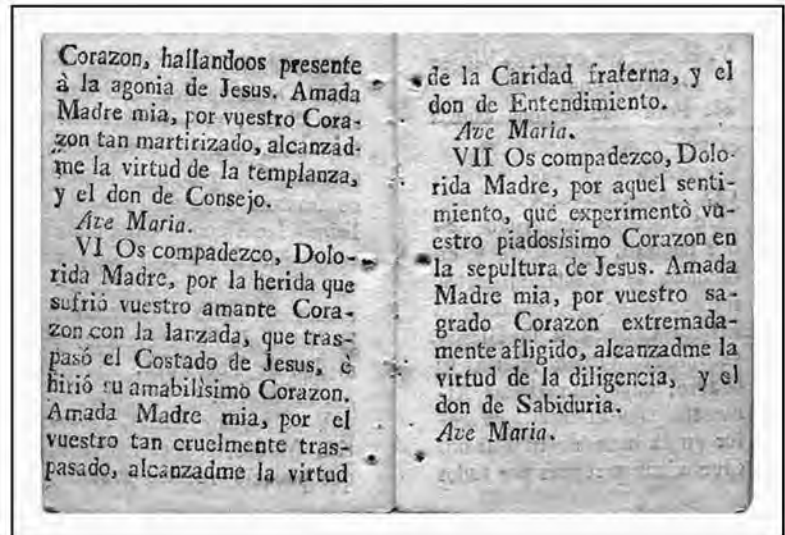 Corazon, hallandoos presente
à la agonia de Jesus. Amada
Madre mia, por vuestro Cora-
zon tan martirizado, alcanzad-
me la virtud de la templanza,
y el don de Consejo.
Ave Maria.
VI Os compadezco, Dolo-
rida Madre, por la herida que
sufrió vuestro amante Cora-
zon con la lanzada, que tras-
pasó el Costado de Jesus, è
hirió su amabilìsimo Corazon.
Amada Madre mia, por el
vuestro tan cruelmente tras-
pasado, alcanzadme la virtud
de la Caridad fraterna, y el
don de Entendimiento.
Ave Maria.
VII Os compadezco, Dolo-
rida Madre, por aquel senti-
miento, que experimentò vu-
estro piadosísimo Corazon en
la sepultura de Jesus. Amada
Madre mia, por vuestro sa-
grado Corazon extremada-
mente afligido, alcanzadme la
virtud de la diligencia, y el
don de Sabiduria.
Ave Maria.